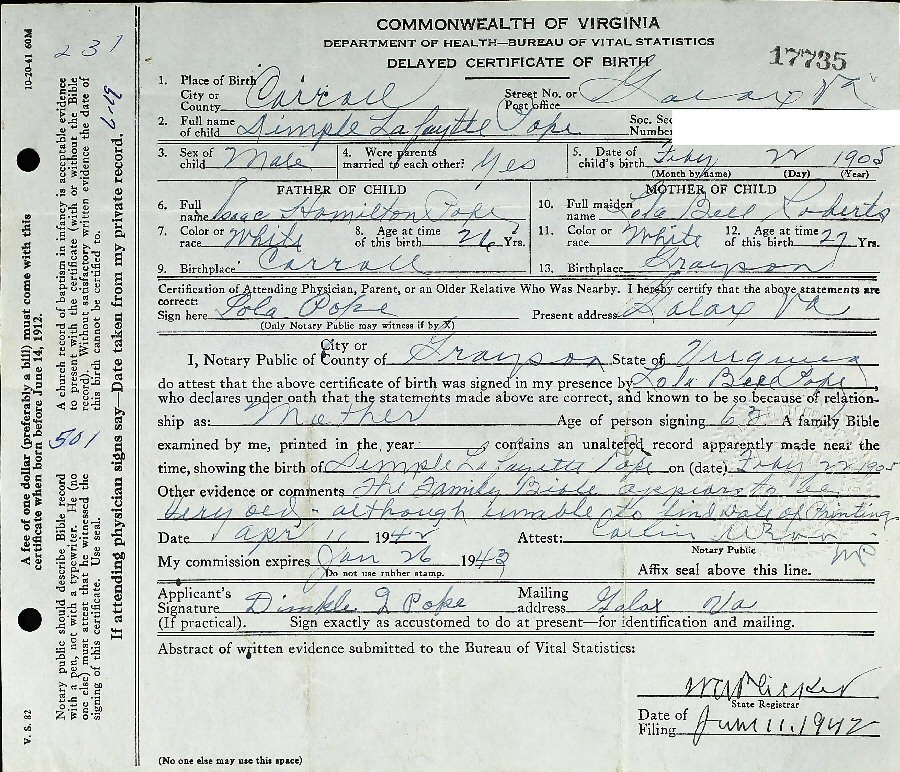 COMMONWEALTH OF VIRGINIA
DEPARTMENT OF HEALTH—BUREAU OF VITAL STATISTICS
DELAYED CERTIFICATE OF BIRTH
17735
1. Place of Birth City or County Carroll Street No. or Post office Galax Va
2. Full name of child Dimple Lafaytte Pope Soc. Sec Number
3. Sex of child Male 4. Were parents married to each other? Yes 5. Date of child's birth Feby 22 1905
(Month by name) (Day) (Year)
FATHER OF CHILD MOTHER OF CHILD
6. Full name Isaac Hamilton Pope 10. Full maiden name Lola Bell Roberts
7. Color or race White 8. Age at time of this birth 26 Yrs. 11. Color or race White 12. Age at time of this birth 27 Yrs.
9. Birthplace Carroll 13. Birthplace Grayson
Certification of Attending Physician, Parent, or an Older Relative Who Was Nearby. I hereby certify that the above statements are
correct:
Sign here Lola Pope Present address Galax Va
(Only Notary Public may witness if by X)
I, Notary Public of City or County of Grayson State of Virginia
do attest that the above certificate of birth was signed in my presence by Lola Bell Pope,
who declares under oath that the statements made above are correct, and known to be so because of relation-
ship as: Mother Age of person signing 63 A family Bible
examined by me, printed in the year contains an unaltered record apparently made near the
time, showing the birth of Dimple Lafayette Pope on (date) Feby 22 1905
Other evidence or comments The Family Bible appears to be
very old - although unable to find date of Printing
Date Apr 11 1942 Attest:
Notary Public
My commission expires Jan 26 1943
Do not use rubber stamp.
Affix seal above this line.
Applicant's Signature Dimple L Pope Mailing address Galax Va
(If practical). Sign exactly as accustomed to do at present—for identification and mailing.
Abstract of written evidence submitted to the Bureau of Vital Statistics:
State Registrar
Date of Filing June 11, 1942
(No one else may use this space)
10-20-41 60M
231
A church record of baptism in infancy is acceptable evidence
to present with the certificate (with or without the Bible
record). Without satisfactory written evidence the date of
this birth cannot be certified to.
A fee of one dollar (preferably a bill) must come with this
certificate when born before June 14, 1912.
501
Notary public should describe Bible record
with a pen, not with a typewriter. He (no
one else) must attest that he witnessed the
signing of this certificate. Use seal.
If attending physician signs say—Date taken from my private record.
V. S. 82